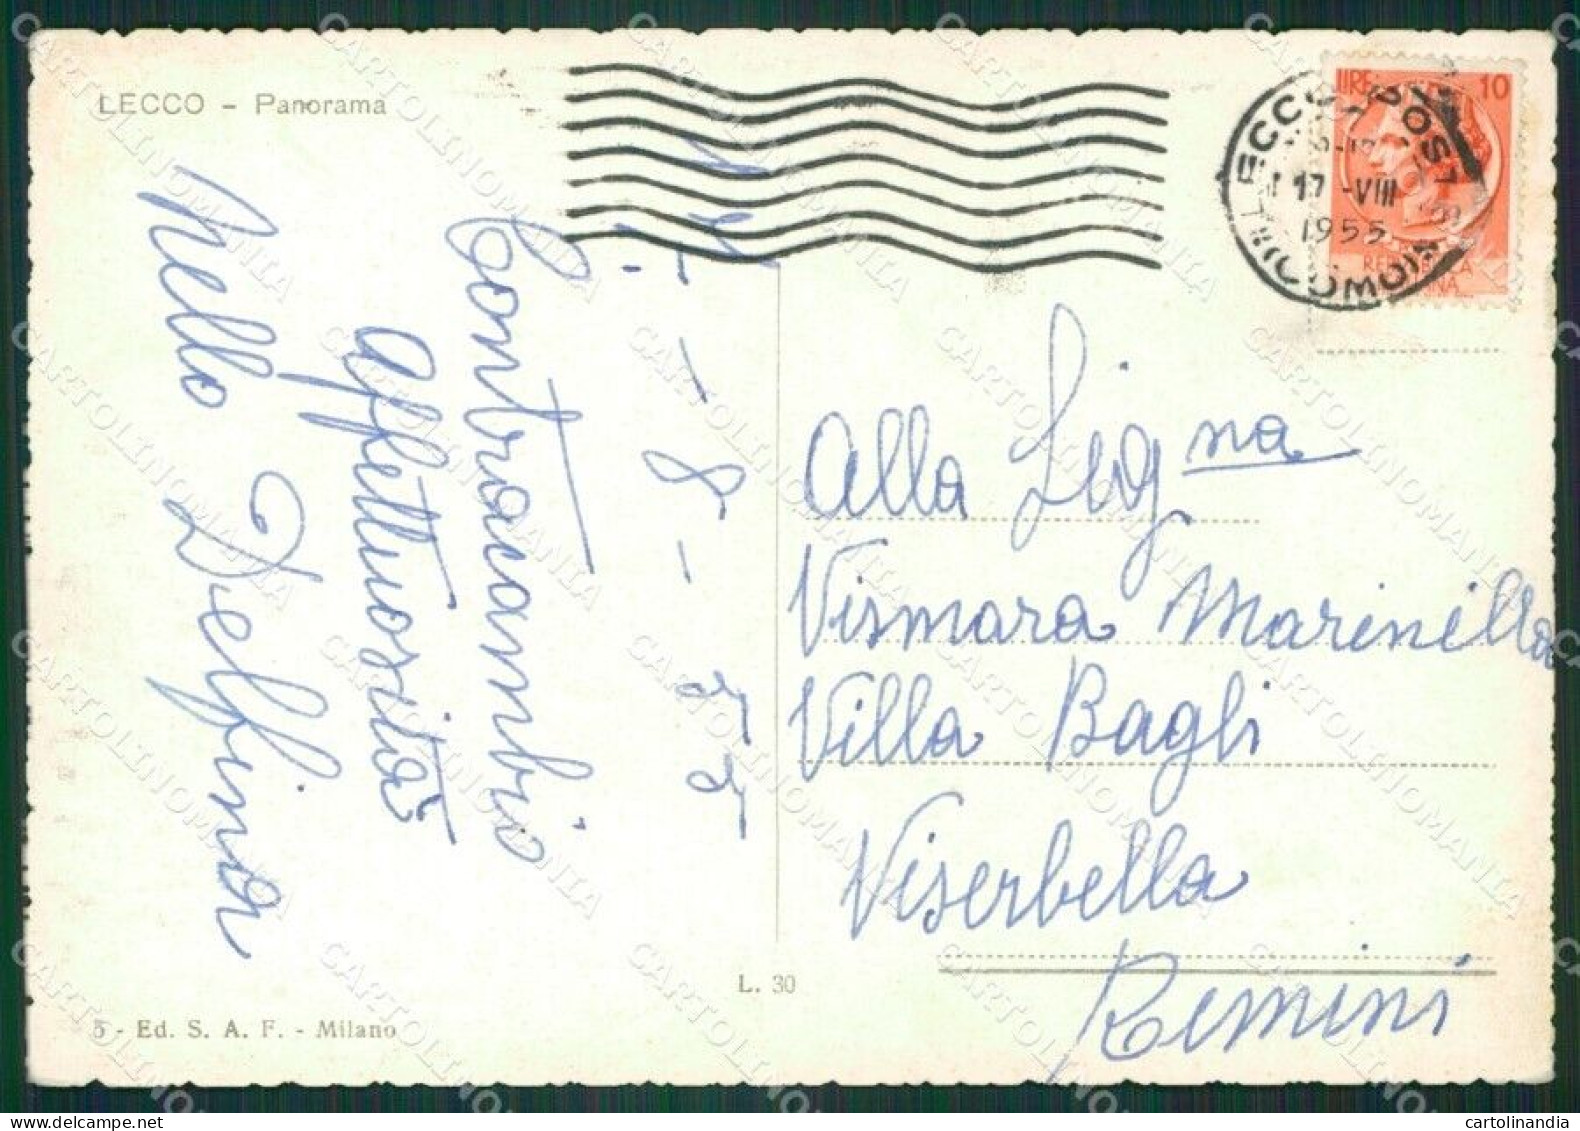 LECCO - Panorama
LIRE 10
LECCO POSTE
17 -VIII
1955
17-8-55
Contraccambio
affettuosità
Nello Delfina
Alla Sig.na
Vismara Marinella
Villa Bagli
Viserbella
Rimini
L. 30
5 - Ed. S. A. F. - Milano
CARTOLINOMANIA
cartolinandia